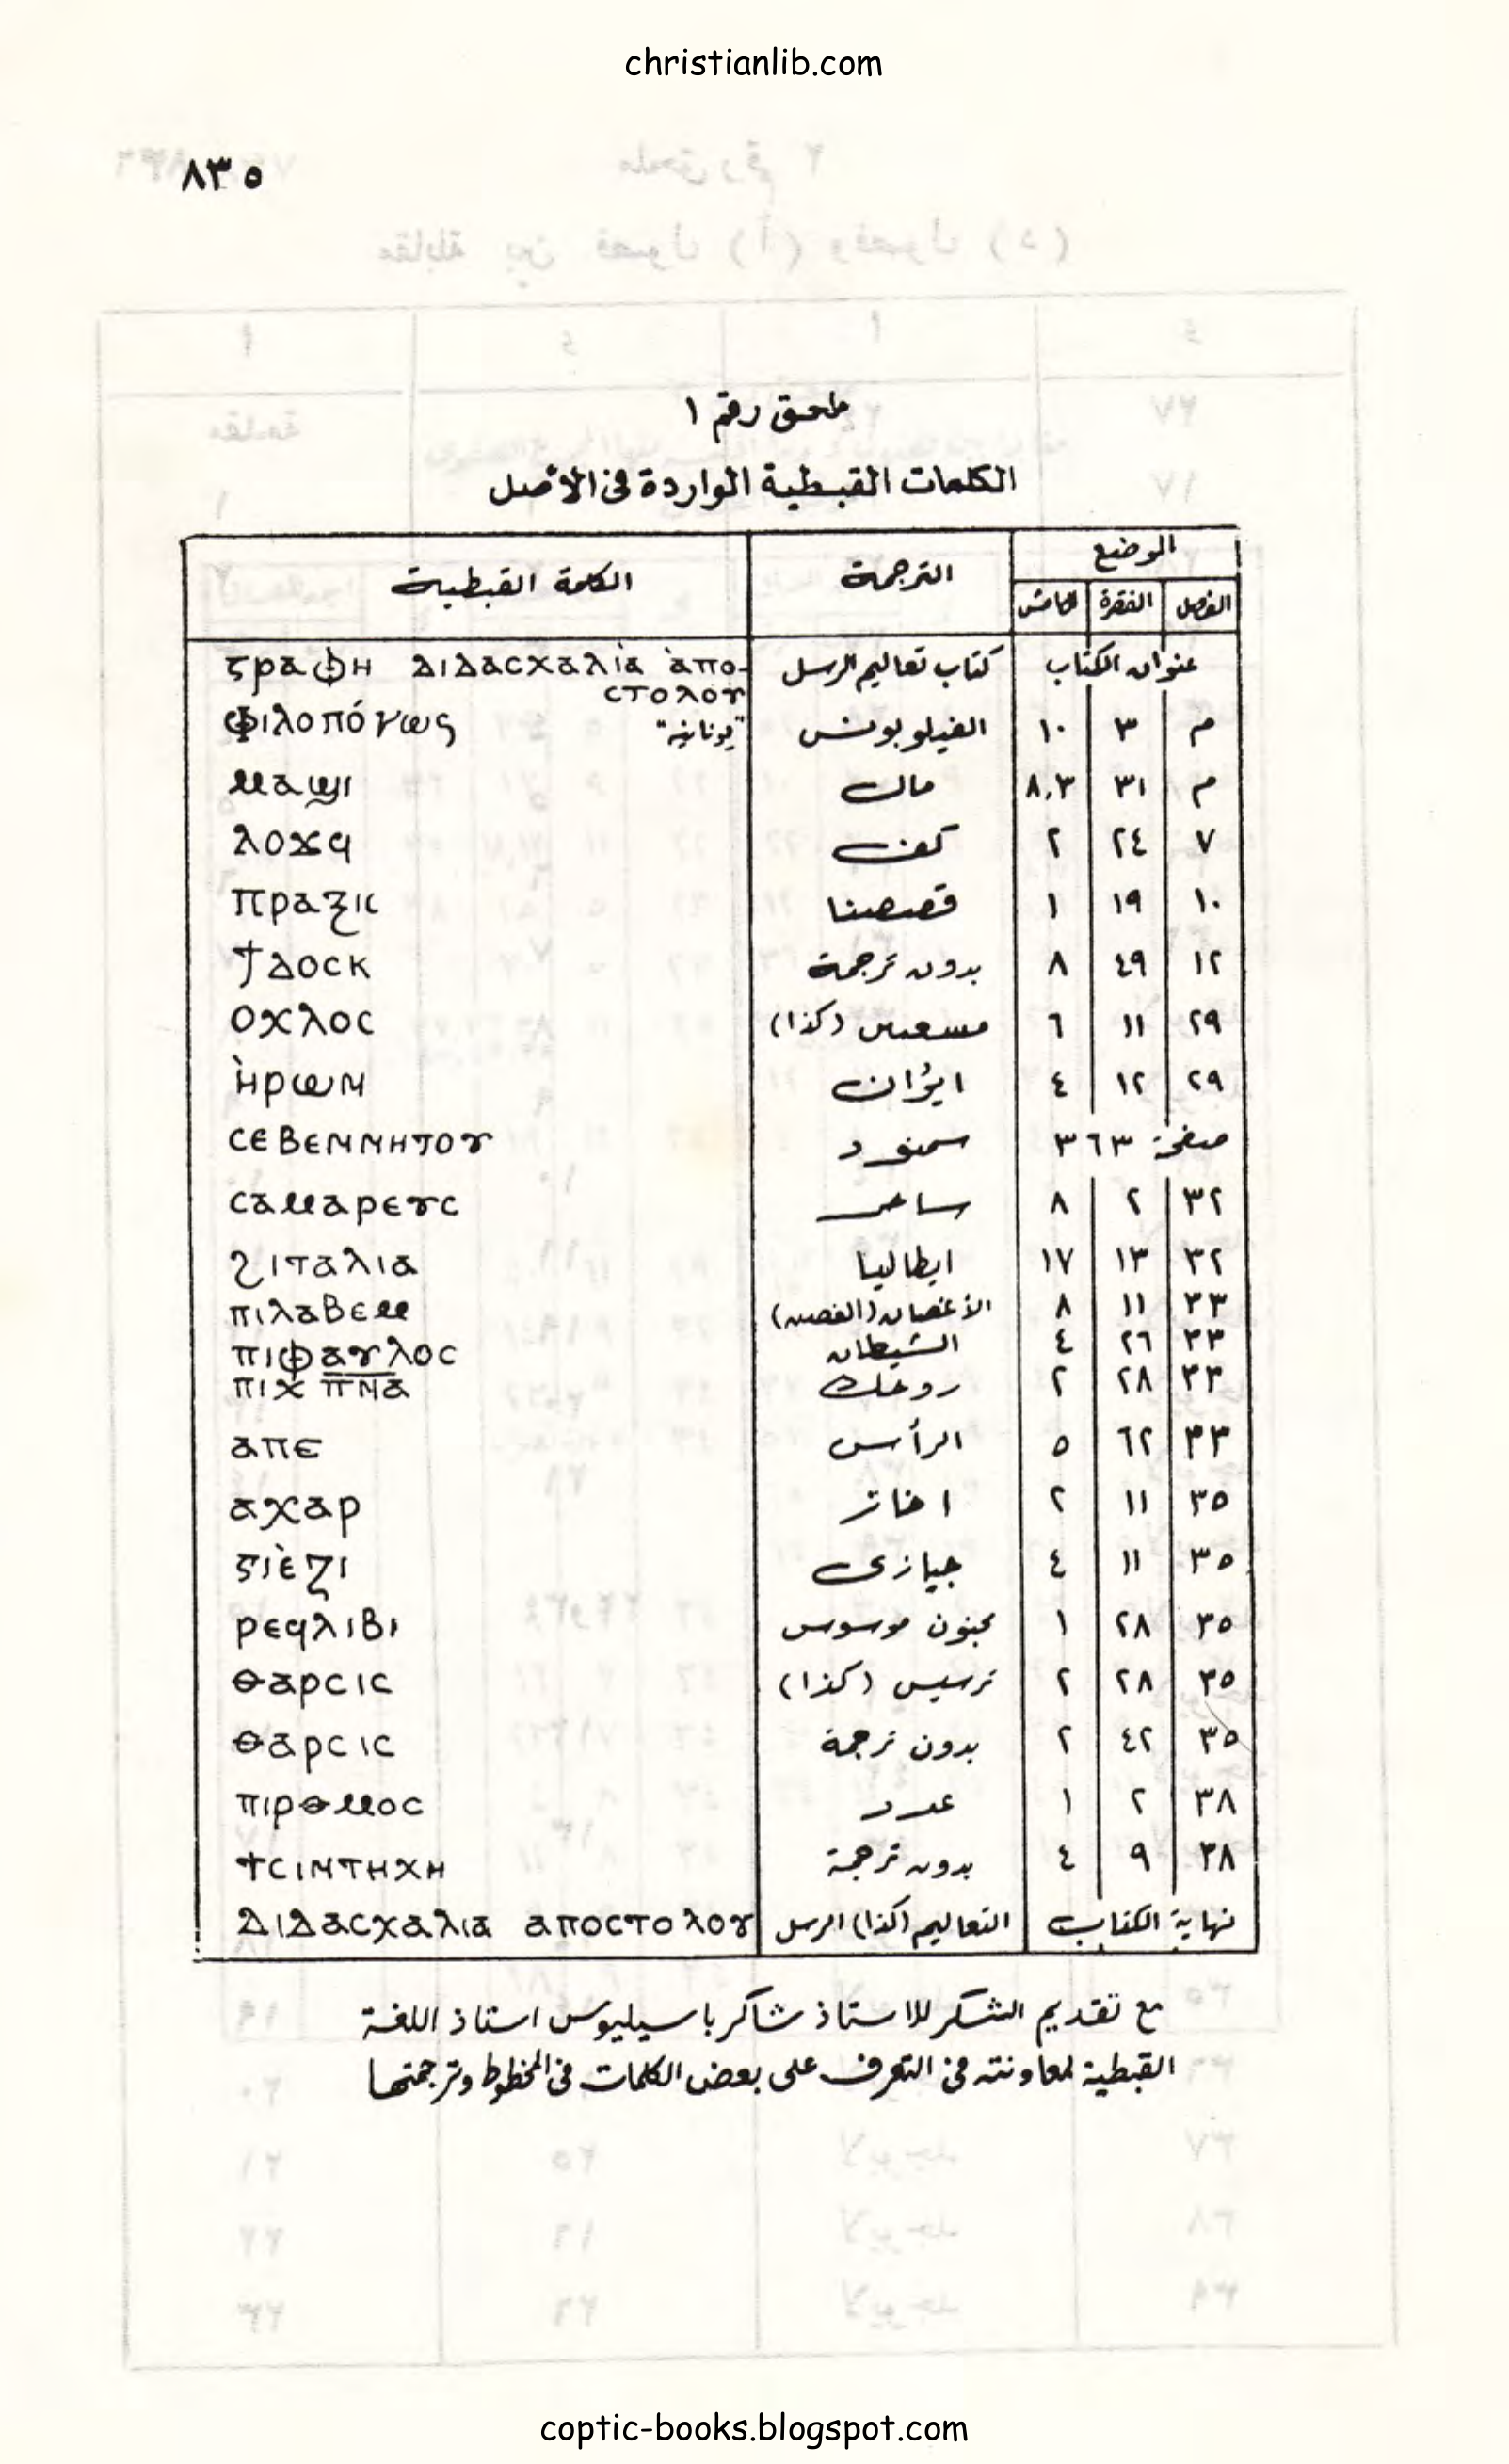 christianlib.com
٨٣٥
ملحق رقم ١
الكلمات القبطية الواردة فى الأصل
الموضع الترجمة الكلمة القبطية
الفصل الفقرة هامش
عنوان الكتاب كتاب تعاليم الرسل ⲅⲣⲁⲫⲏ ⲇⲓⲇⲁⲥⲭⲁⲗⲓ̀ⲁ ⲁ̀ⲡⲟ-
ⲥⲧⲟⲗⲟⲩ
م ٣ ١٠ الفيلوبونس "يونانية" Φιλοπόνως
م ٣١ ٨،٣ مال ⲙⲁϣⲓ
٧ ٢٤ ٢ كعف ⲗⲟϫϥ
١٠ ١٩ ١ قصصنا ⲡⲣⲁⲝⲓⲥ
١٢ ٤٩ ٨ بدون ترجمة ϯⲇⲟⲥⲕ
٢٩ ١١ ٦ (كذا) ⲟⲭⲗⲟⲥ
٢٩ ١٢ ٤ ايؤان ⲏ̀ⲣⲱⲛ
صفحة ٣٦٣ سمنود ⲥⲉⲃⲉⲛⲛⲏⲧⲟⲩ
٣٢ ٢ ٨ ⲥⲁⲙⲁⲣⲉⲩⲥ
٣٢ ١٣ ١٧ ايطاليا ϩⲓⲧⲁⲗⲓⲁ
٣٣ ١١ ٨ الأغصان (الغصن) ⲡⲓⲗⲁⲃⲉⲙ
٣٣ ٢٦ ٤ الشيطان ⲡⲓⲫⲁⲩⲗⲟⲥ
٣٣ ٢٨ ٢ روحك ⲡⲓⲭ ⲡⲛⲁ
٣٣ ٦٢ ٥ الرأس ⲁⲡⲉ
٣٥ ١١ ٢ اخار ⲁⲭⲁⲣ
٣٥ ١١ ٤ جيازى ⲅⲓⲉ̀ⲍⲓ
٣٥ ٢٨ ١ مجنون موسوس ⲣⲉϥⲗⲓⲃⲓ
٣٥ ٢٨ ٢ ترسيس (كذا) ⲑⲁⲣⲥⲓⲥ
٣٥ ٤٢ ٢ بدون ترجمة ⲑⲁⲣⲥⲓⲥ
٣٨ ٢ ١ عدد ⲡⲓⲣⲑⲙⲟⲥ
٣٨ ٩ ٤ بدون ترجمة ϯⲥⲓⲛⲧⲏⲭⲏ
نهاية الكتاب التعاليم (كذا) الرسل ⲇⲓⲇⲁⲥⲭⲁⲗⲓⲁ ⲁⲡⲟⲥⲧⲟⲗⲟⲩ
مع تقديم الشكر للاستاذ شاكر باسيليوس استاذ اللغة
القبطية لمعاونته فى التعرف على بعض الكلمات فى المخطوط وترجمتها
coptic-books.blogspot.com